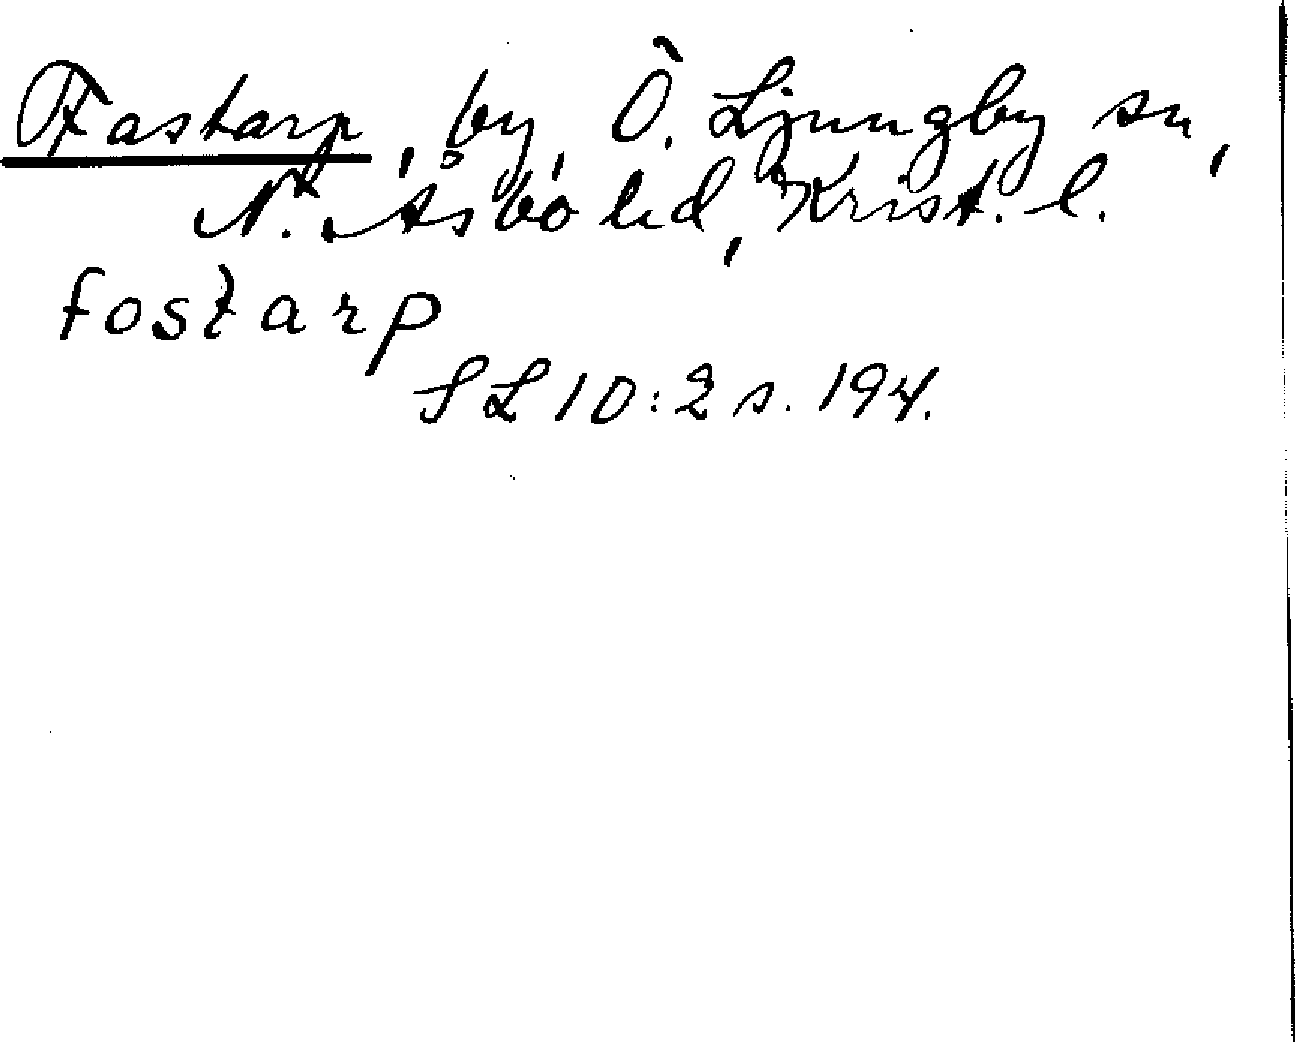 Fastarp, by, Ö. Ljungby sn,
N. Åsbo hd, Krist. l.
fostarp
SL 10:2 s. 194.